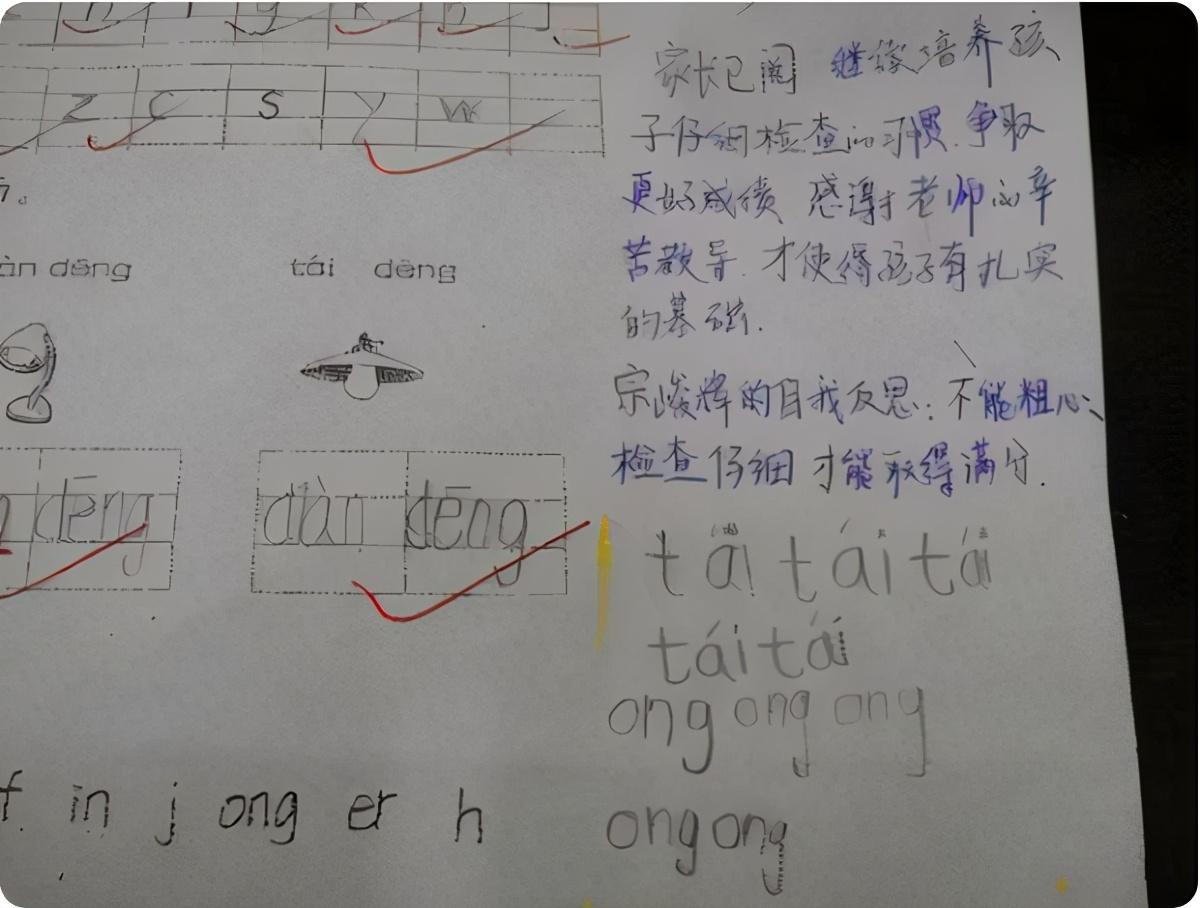 z c s y w
àn dēng tái dēng
dēng diàn dēng
f in j ong er h
家长已阅 继续培养孩
子仔细检查的习惯.争取
更好成绩 感谢老师的辛
苦教导.才使得孩子有扎实
的基础.
宗峻辉的自我反思:不能粗心、
检查仔细才能取得满分.
tái tái tái
tái tái
ong ong ong
ong ong